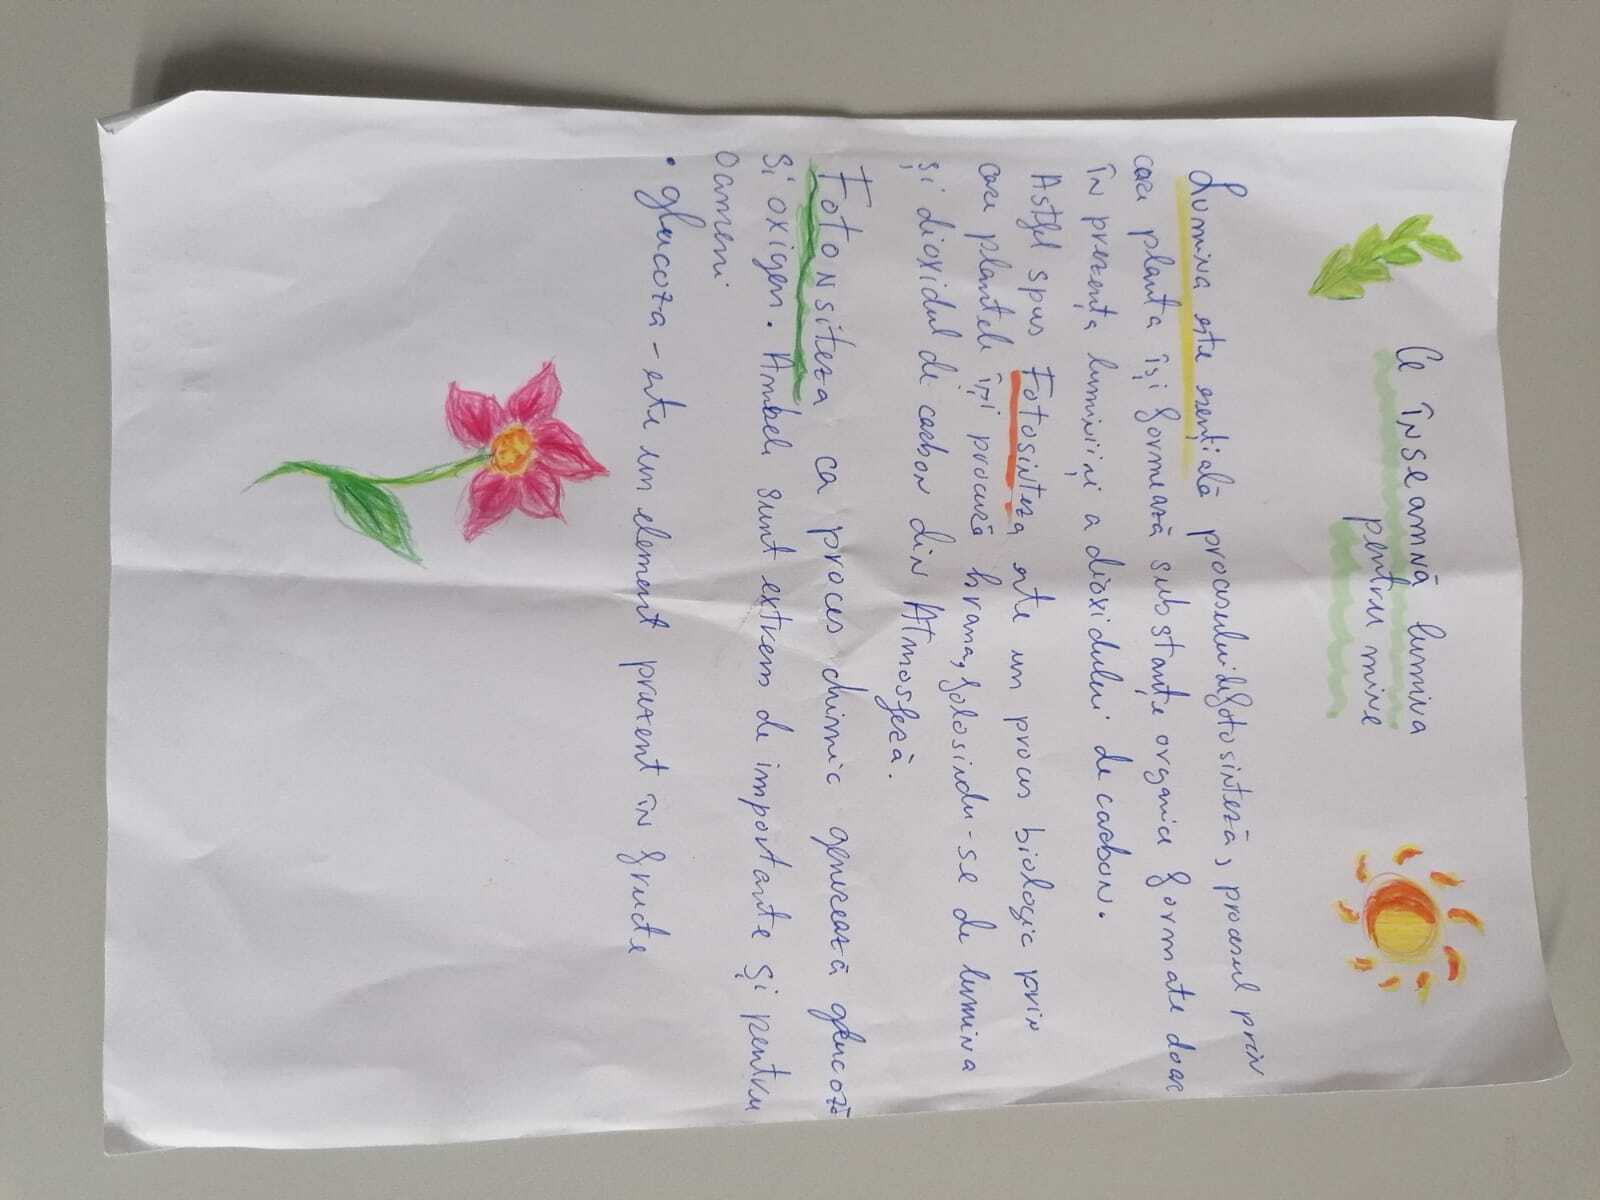 Ce înseamnă lumina
pentru mine
Lumina este esențială procesului de fotosinteză, procesul prin
care planta își formează substanțe organice formate doar
în prezența luminini a dioxidului de carbon.
Astfel spus Fotosinteza este un proces biologic prin
care plantele își procură hrana, folosindu-se de lumina
și dioxidul de carbon din Atmosferă.
Fotonsiteza ca proces chimic generează glucoză
și oxigen. Ambele sunt extrem de importante și pentru
oameni
• glucoza - este un element prezent în fructe